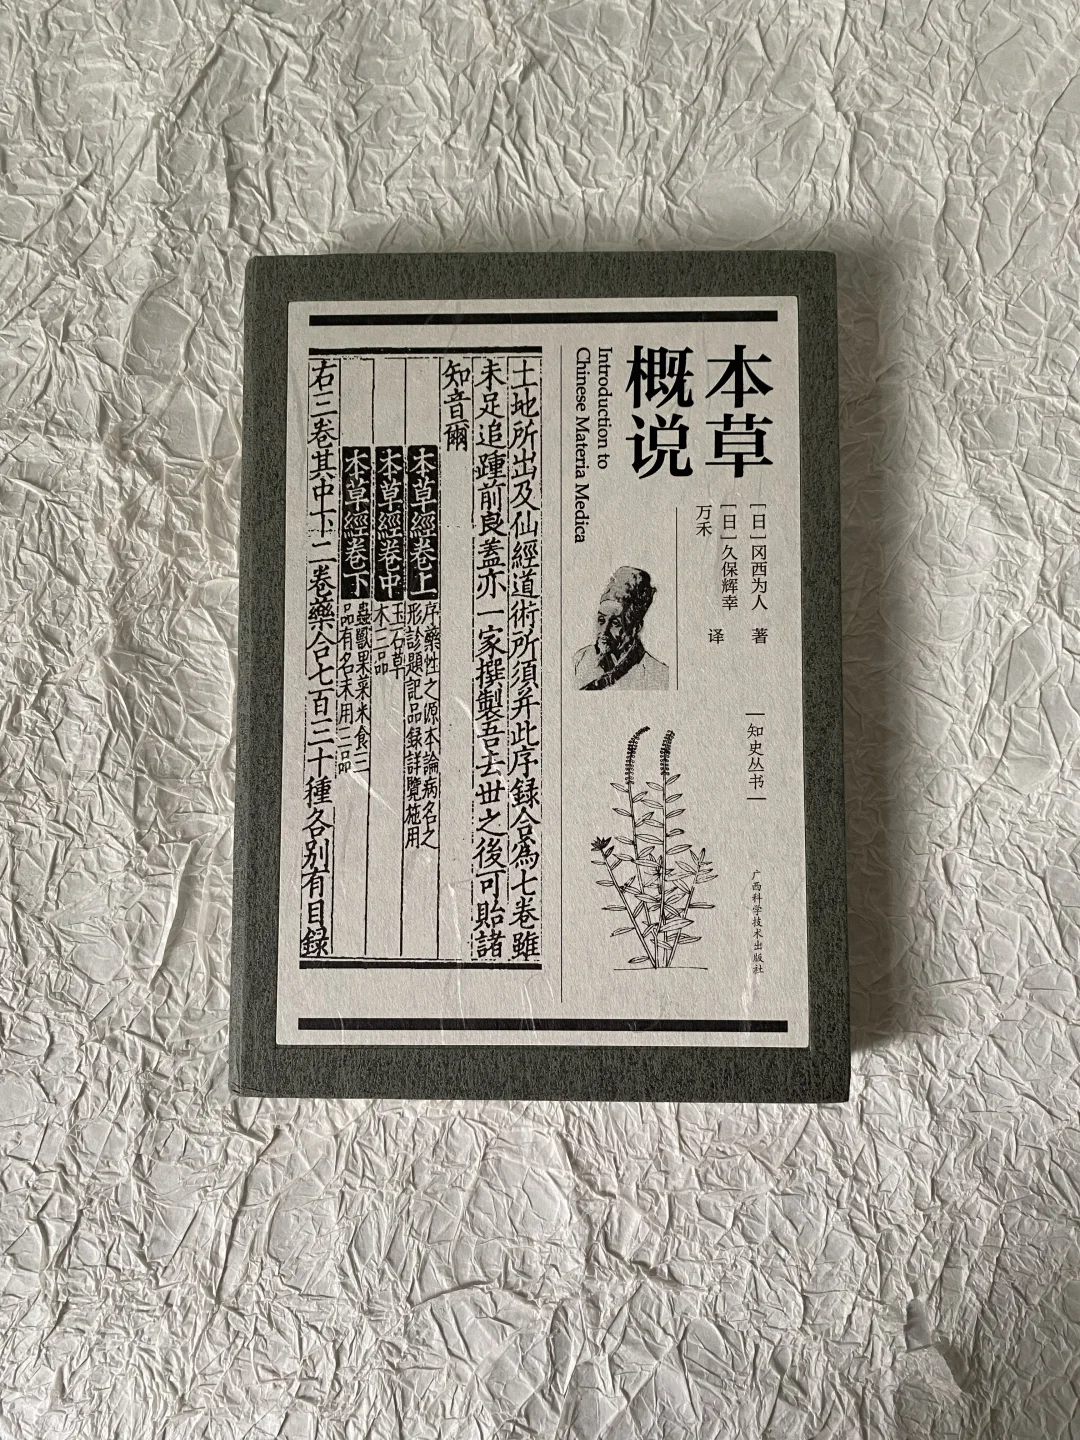 本草
概说
Introduction to
Chinese Materia Medica
[日]冈西为人 著
[日]久保辉幸 译
万禾
知史丛书
广西科学技术出版社
土地所出及仙經道術所須并此序録合爲七卷雖
未足追踵前良蓋亦一家撰製吾去世之後可貽諸
知音爾
本草經卷上
序藥性之源本論病名之
形診題記品録詳覽施用
本草經卷中
玉石草
木三品
本草經卷下
蟲獸果菜米食三
品有名未用三品
右三卷其中下二卷藥合七百三十種各别有目録